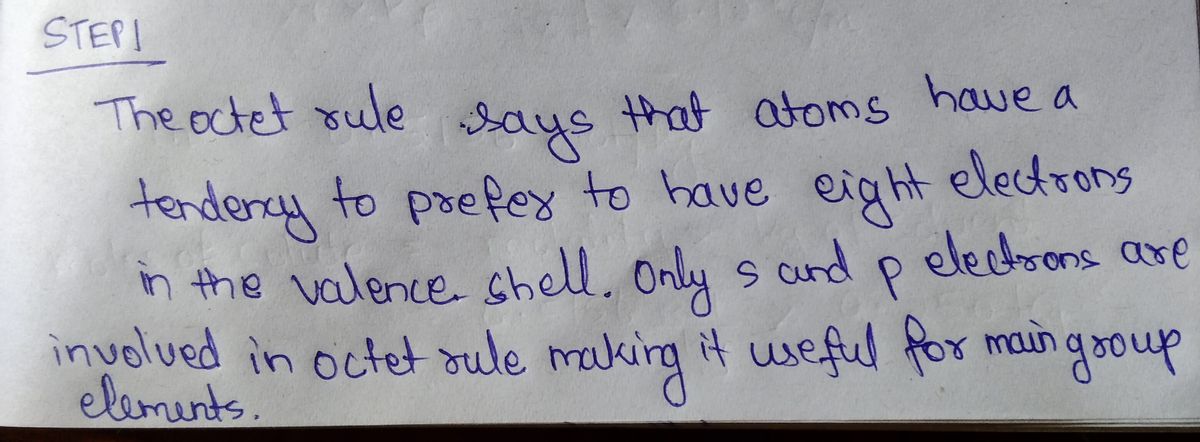 STEP 1
The octet rule says that atoms have a
tendency to prefer to have eight electrons
in the valence shell. Only s and p electrons are
involved in octet rule making it useful for main group
elements.